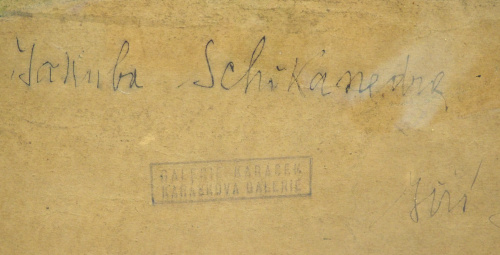 Jakuba Schikanedra
GALERIE KARÁSEK
KARÁSKOVA GALERIE
Jiří